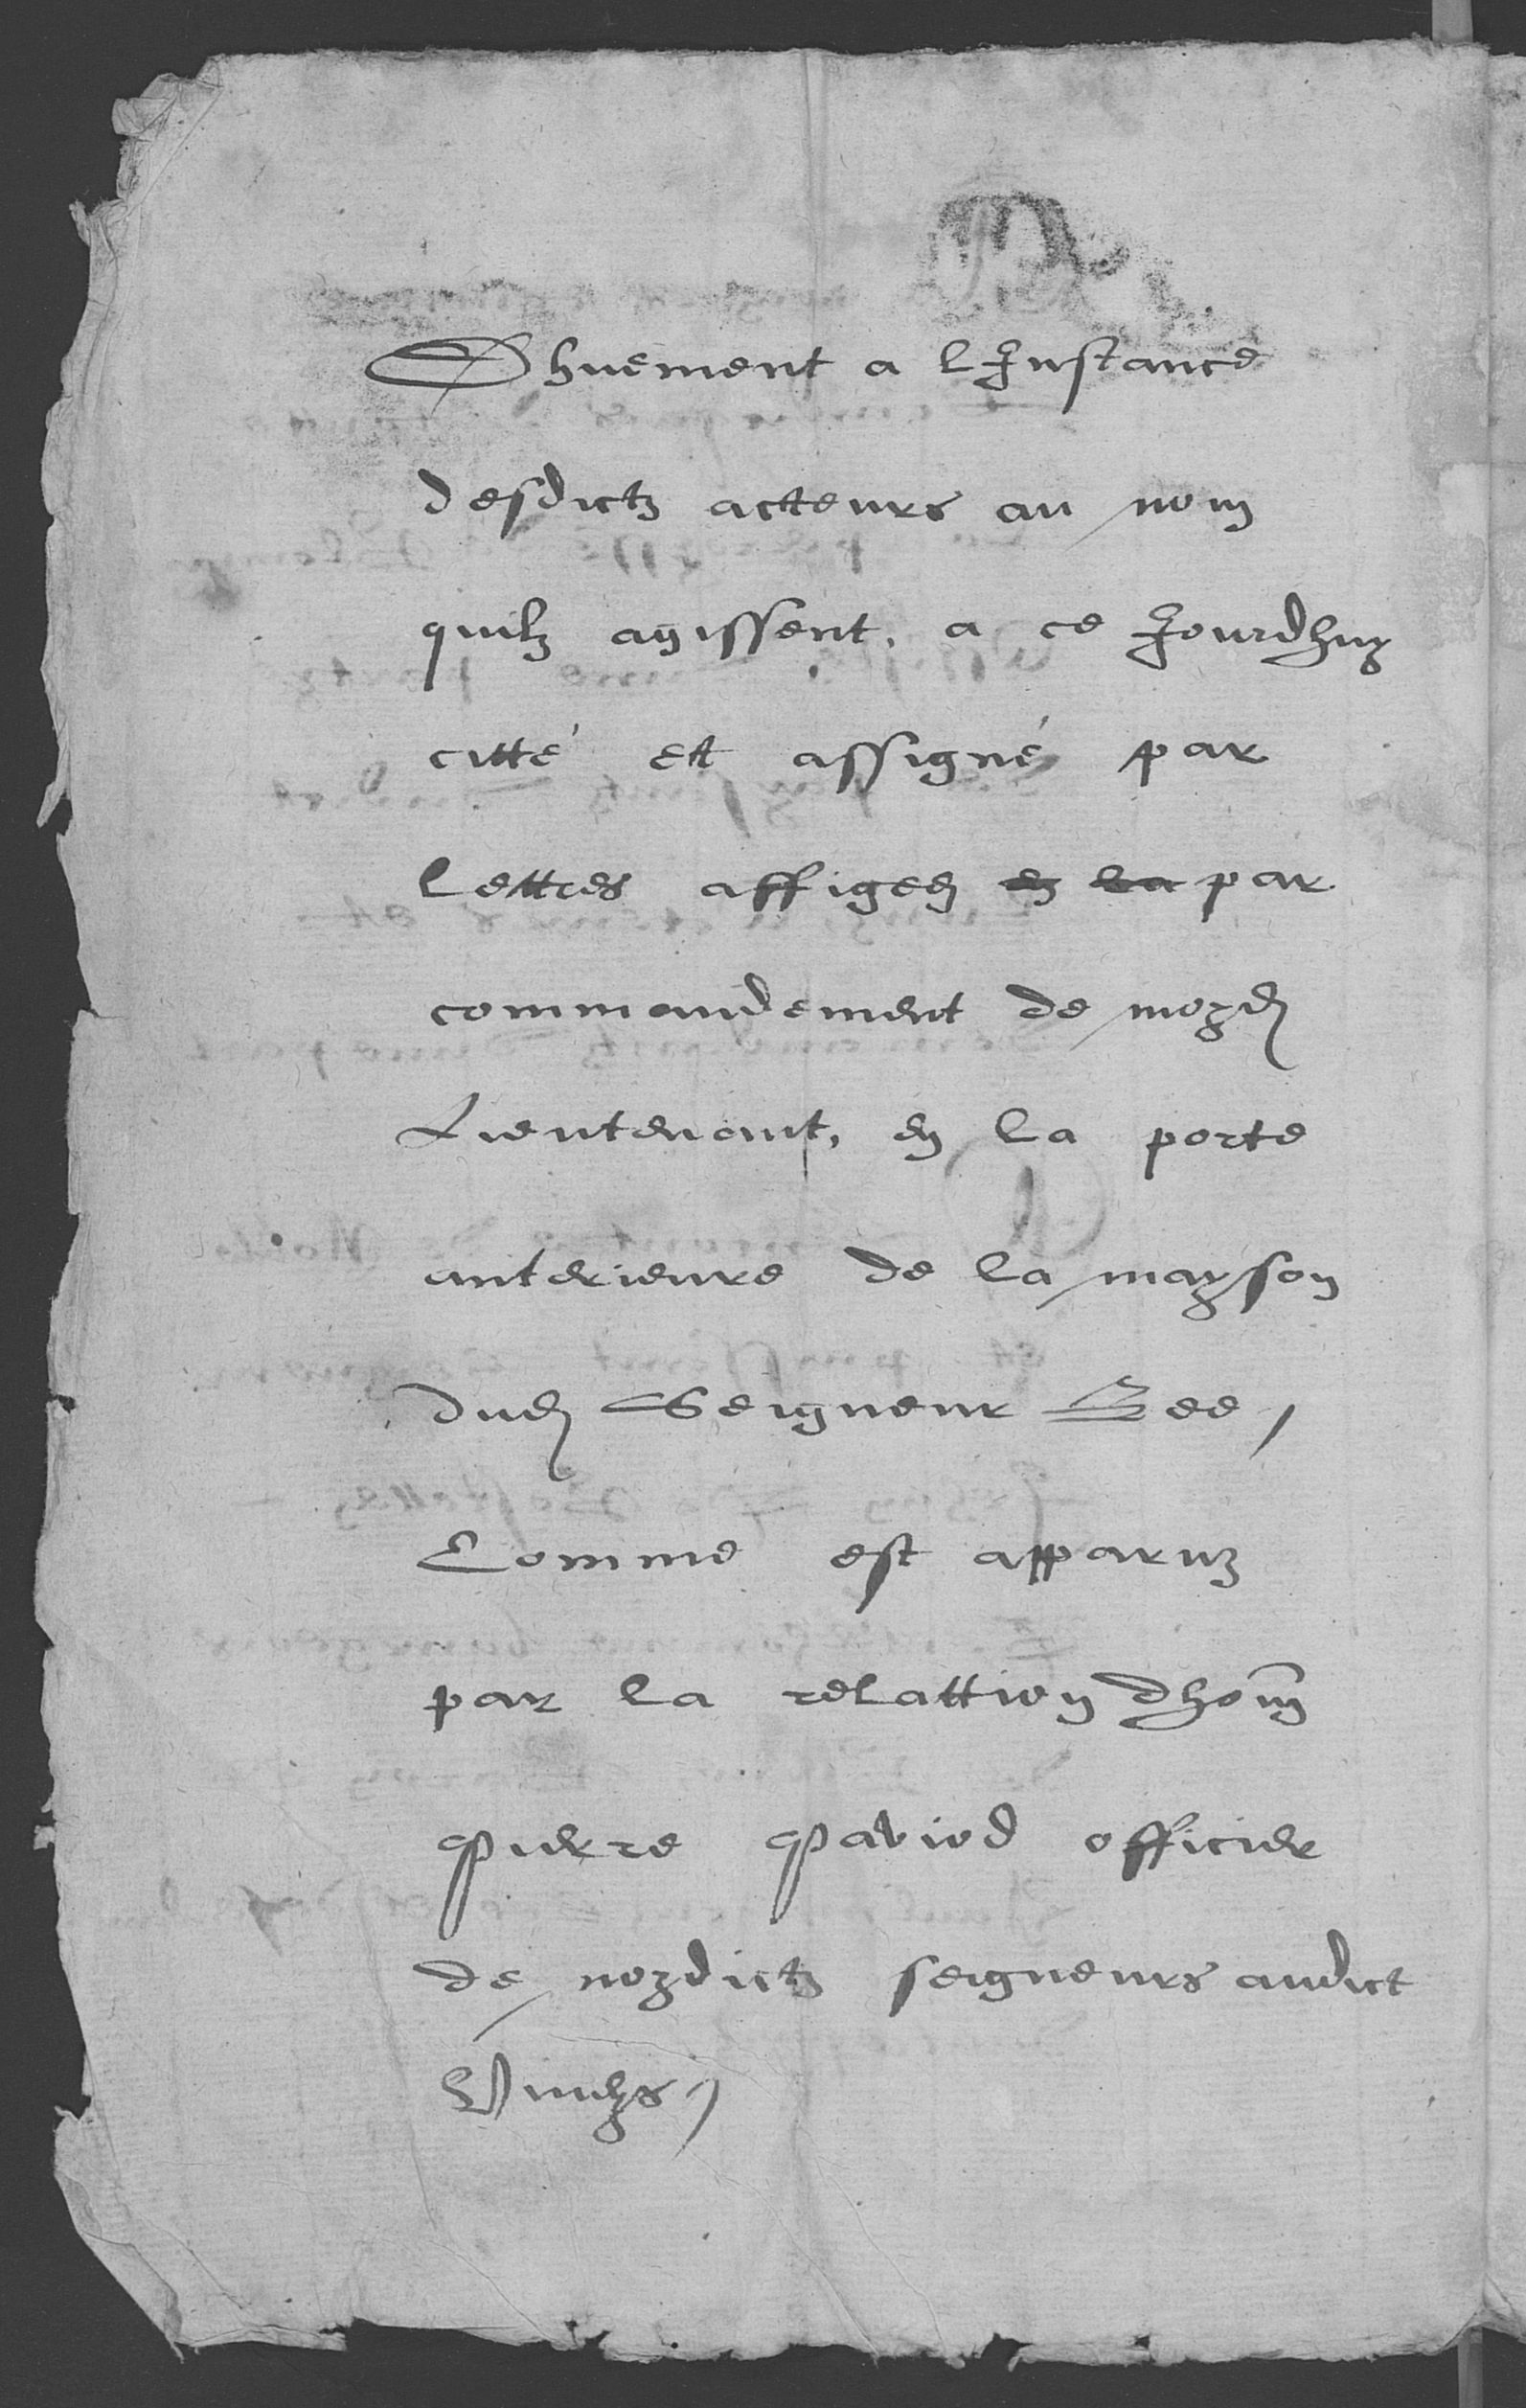 Dhuement a lJnstance
desdictz acteurs au nom
quilz agissent, a ce Jourdhuy
citté et assigné par
lettres affigeez en la par
commandement de mond
Lieutenant, en la porte
anterieure de la mayson
dud Seigneur Bee,
Comme est apparuz
par la relattion dhom
Pierre Paviod officier
de nozdictz seigneurs audict